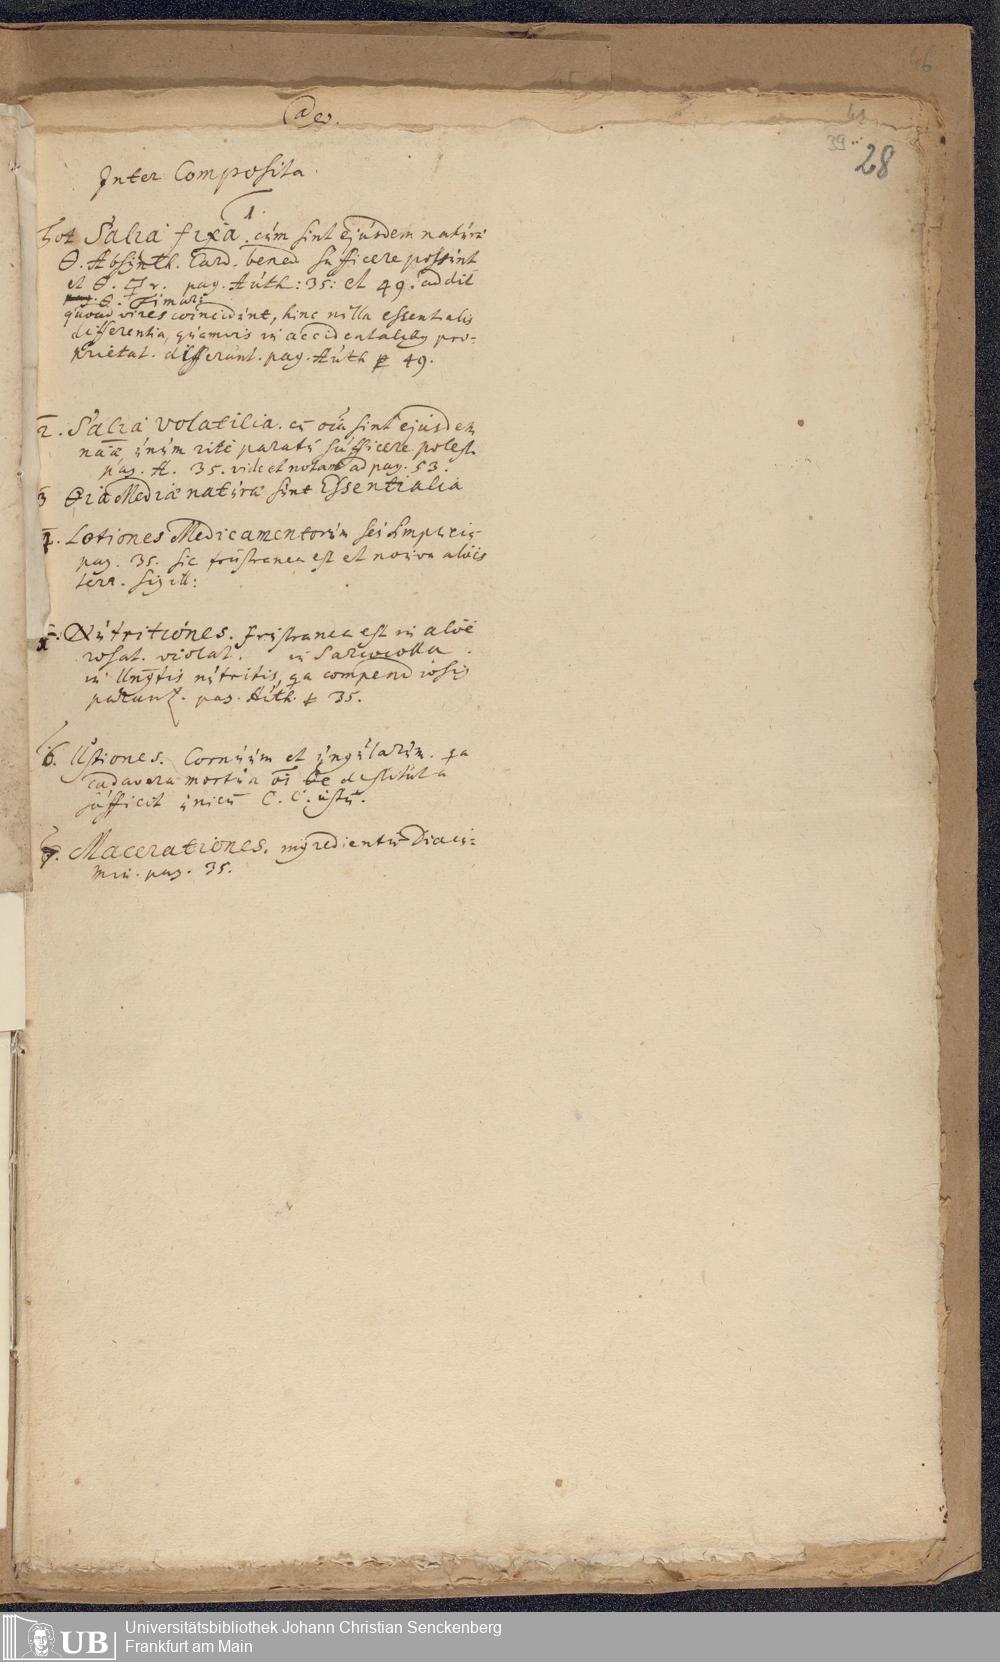 46
41
39
28
Inter Composita.
1.
Tot Salia fixa. cùm sint ejúsdem natúræ
Θ. Absinth. Card. bened sufficere possint
et Θ. pag. Aúth: 35: et 49. addit
quoad vires coincidúnt, hinc núlla essentialis
differentia, qúamvis in accidentalibus pro-
prietat. differunt. pag. Aúth 49.
2. Salia volatilia. sint ejúsdem
únúm rite paratú súfficere potest
pag. A. 35. vide et notam ad pag. 53.
3 Mediæ natúræ sint Essentialia
4. Lotiones Medicamentorúm seú simpliciú-
pag. 35. sic frústranea est et noxia aloës
terr. sigill:
5. Nútritiónes. frústranea est in aloë
rosat. violat. in Sarcocolla.
in Ungtis nútritis, qa compendiosiús
parant. pag. Aúth. 35.
6. Ustiones. Cornúúm et úngúlarúm. qa
cadavera mortúa destitúta
súfficit únicú C. C. ústú.
7. Macerationes. ingredientiú Diacú-
min. pag. 35.
UB
Universitätsbibliothek Johann Christian Senckenberg
Frankfurt am Main